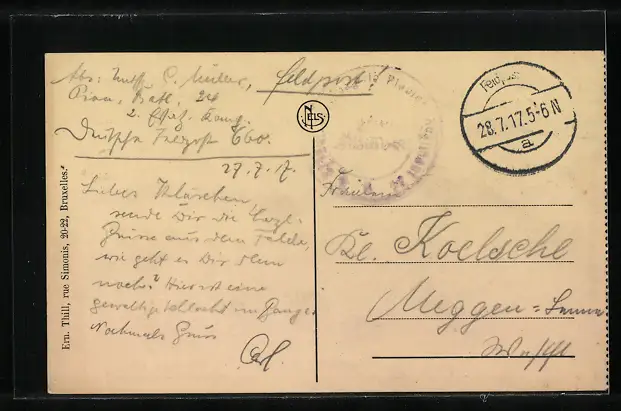 Abs: Untff. C. Müller, Feldpost!
Pion. Batl. 24
2. Ers. Komp.
Deutsche Feldpost 660.
27.7.17.
Liebes Klärchen,
sende Dir die herzl.
Grüsse aus dem Felde,
wie geht es Dir denn
noch? Hier ist eine
gewaltige Schlacht im Gange.
Nochmals Gruss
Carl
Ern. Thill, rue Simonis, 20-22, Bruxelles.
NELS
Feldpost
28.7.17.5-6N
a
Fräulein
Kl. Koelsche
Meggen-Lenne
Westf.